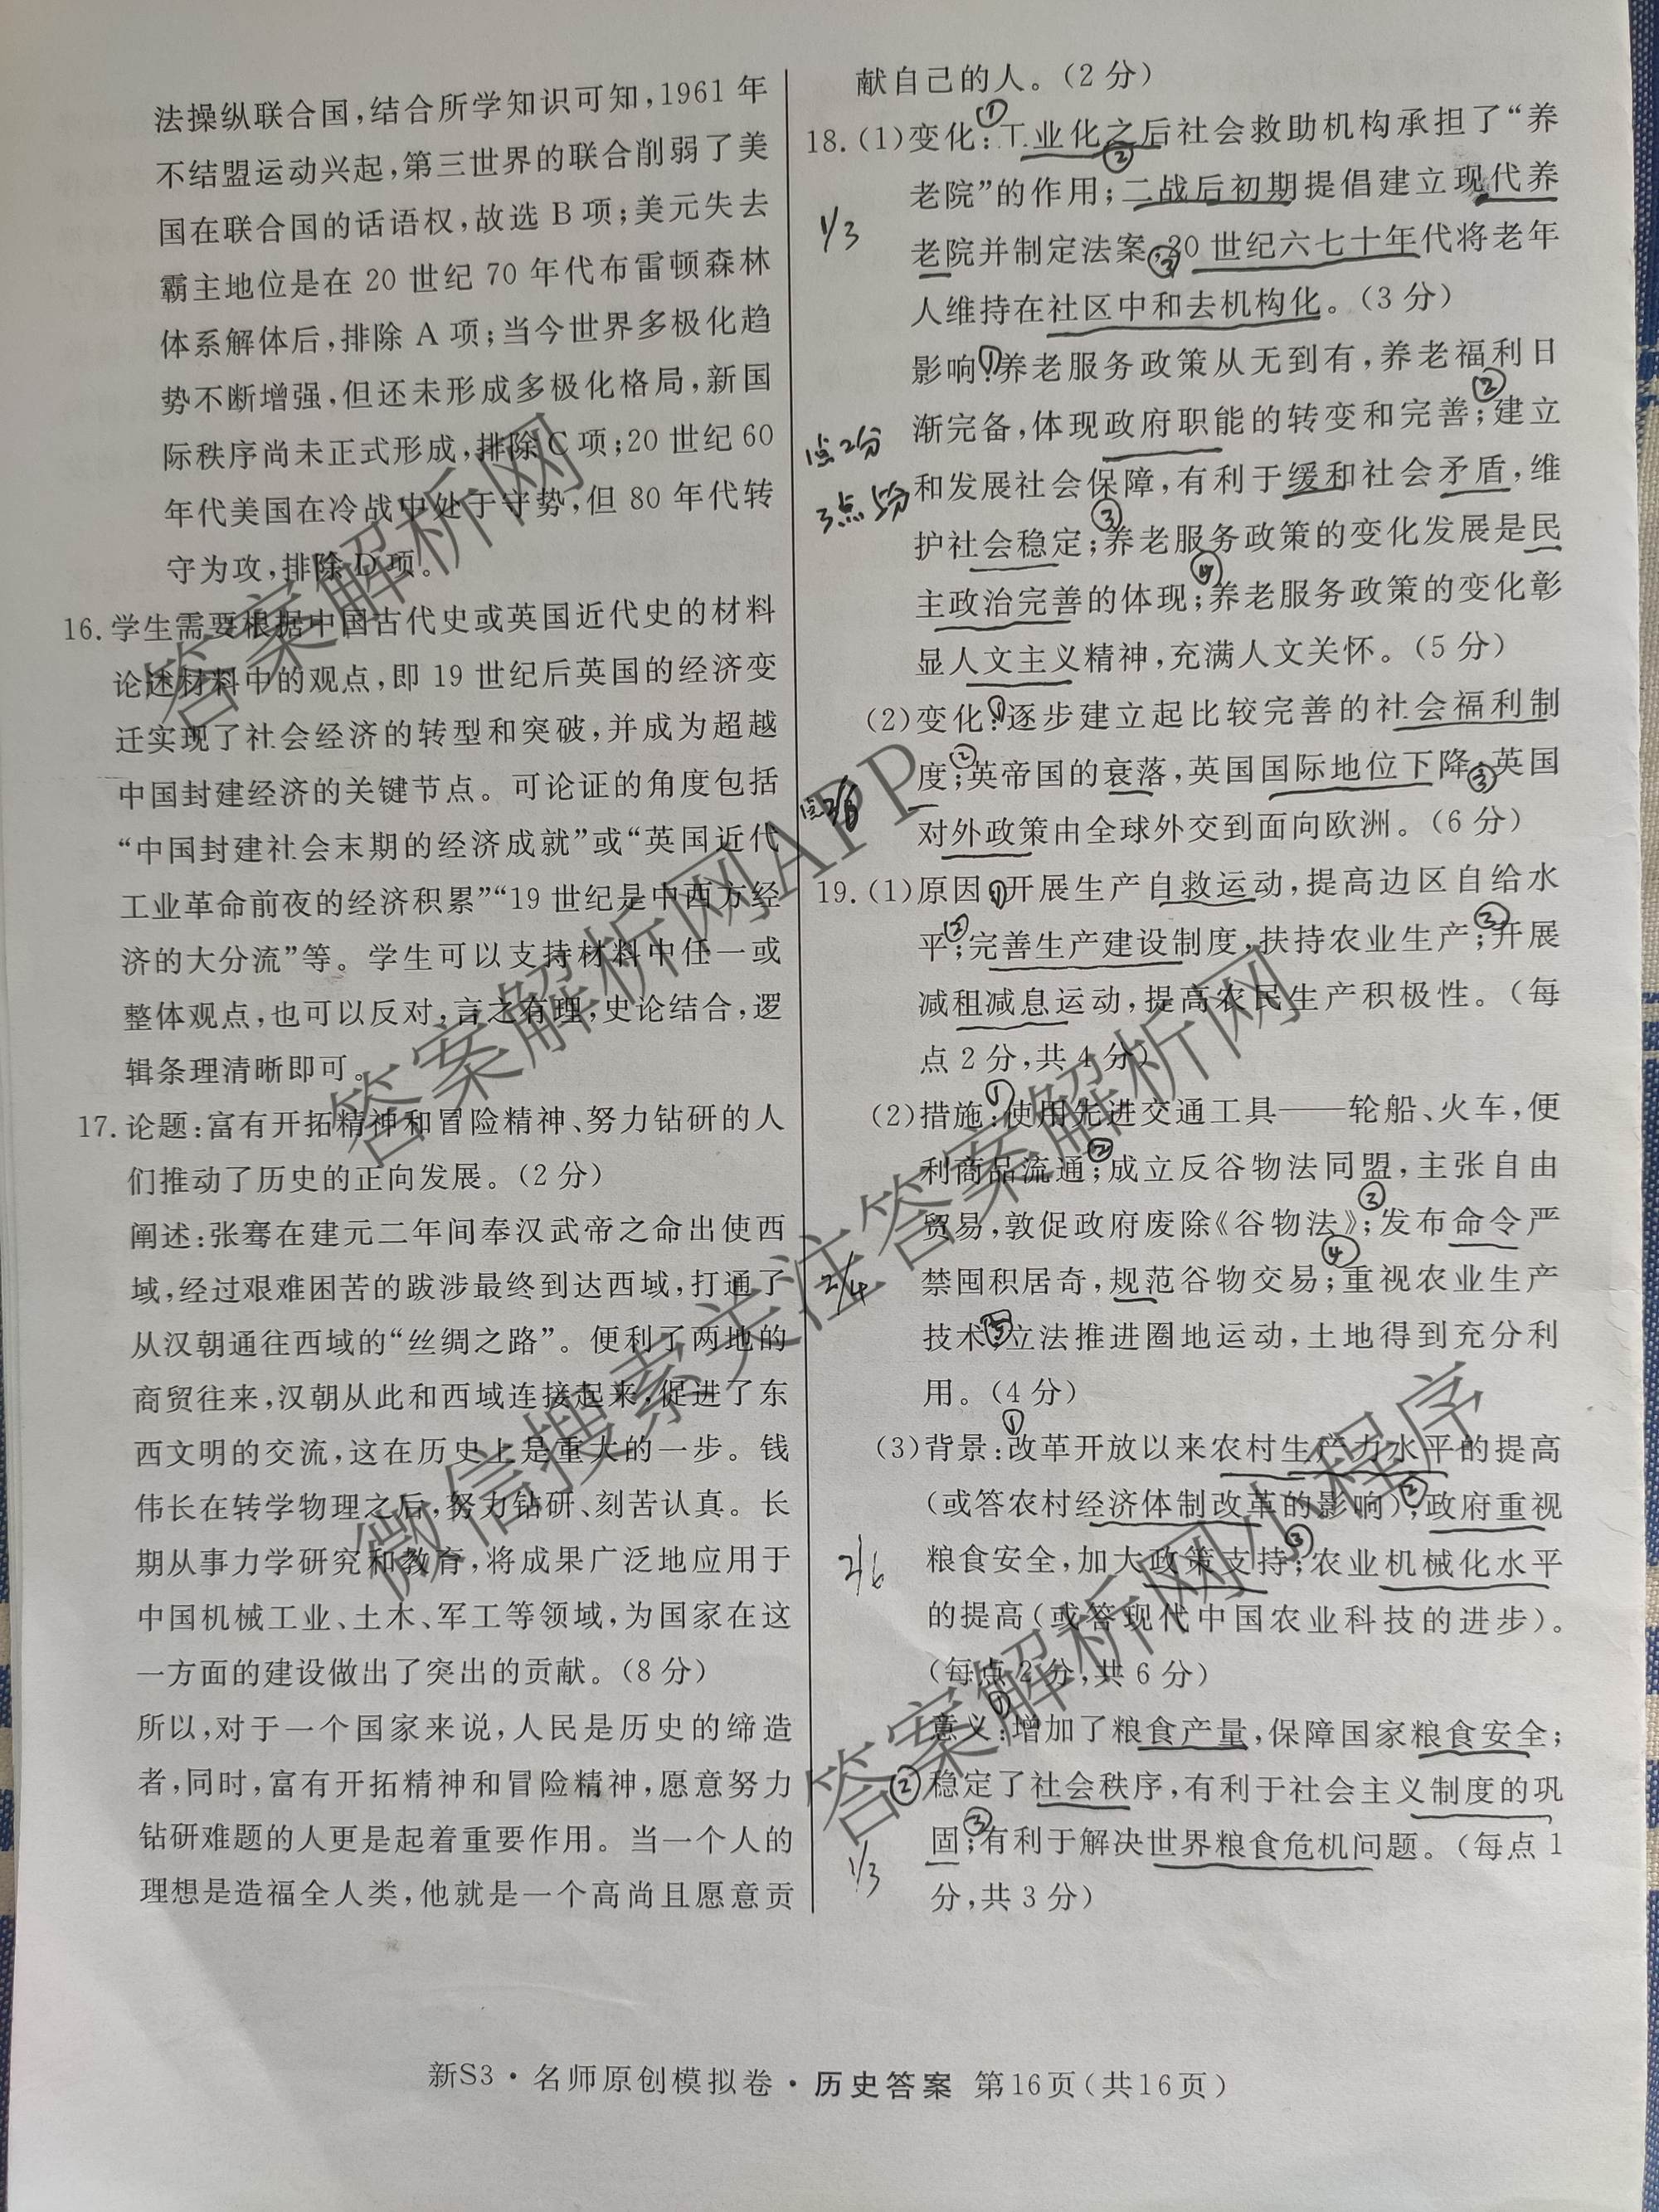 法操纵联合国,结合所学知识可知,1961年
不结盟运动兴起,第三世界的联合削弱了美
国在联合国的话语权,故选B项;美元失去
霸主地位是在20世纪70年代布雷顿森林
体系解体后,排除A项;当今世界多极化趋
势不断增强,但还未形成多极化格局,新国
际秩序尚未正式形成,排除C项;20世纪60
年代美国在冷战中处于守势,但80年代转
守为攻,排除D项。
16.学生需要根据中国古代史或英国近代史的材料
论述材料中的观点,即19世纪后英国的经济变
迁实现了社会经济的转型和突破,并成为超越
中国封建经济的关键节点。可论证的角度包括
“中国封建社会末期的经济成就”或“英国近代
工业革命前夜的经济积累”“19世纪是中西方经
济的大分流”等。学生可以支持材料中任一或
整体观点,也可以反对,言之有理,史论结合,逻
辑条理清晰即可。
17.论题:富有开拓精神和冒险精神、努力钻研的人
们推动了历史的正向发展。(2分)
阐述:张骞在建元二年间奉汉武帝之命出使西
域,经过艰难困苦的跋涉最终到达西域,打通了
从汉朝通往西域的“丝绸之路”。便利了两地的
商贸往来,汉朝从此和西域连接起来,促进了东
西文明的交流,这在历史上是重大的一步。钱
伟长在转学物理之后,努力钻研、刻苦认真。长
期从事力学研究和教育,将成果广泛地应用于
中国机械工业、土木、军工等领域,为国家在这
一方面的建设做出了突出的贡献。(8分)
所以,对于一个国家来说,人民是历史的缔造
者,同时,富有开拓精神和冒险精神,愿意努力
钻研难题的人更是起着重要作用。当一个人的
理想是造福全人类,他就是一个高尚且愿意贡
献自己的人。(2分)
18.(1)变化:①工业化之后社会救助机构承担了“养
老院”的作用;②二战后初期提倡建立现代养
1/3
老院并制定法案;③20世纪六七十年代将老年
人维持在社区中和去机构化。(3分)
影响:①养老服务政策从无到有,养老福利日
渐完备,体现政府职能的转变和完善;②建立
1点2分
和发展社会保障,有利于缓和社会矛盾,维
3点5分
护社会稳定;③养老服务政策的变化发展是民
主政治完善的体现;④养老服务政策的变化彰
显人文主义精神,充满人文关怀。(5分)
(2)变化:①逐步建立起比较完善的社会福利制
度;②英帝国的衰落,英国国际地位下降;③英国
对外政策由全球外交到面向欧洲。(6分)
19.(1)原因:①开展生产自救运动,提高边区自给水
平;②完善生产建设制度,扶持农业生产;③开展
减租减息运动,提高农民生产积极性。(每
点2分,共4分)
(2)措施:①使用先进交通工具——轮船、火车,便
利商品流通;②成立反谷物法同盟,主张自由
贸易,敦促政府废除《谷物法》;③发布命令严
2/4
禁囤积居奇,规范谷物交易;④重视农业生产
技术;⑤立法推进圈地运动,土地得到充分利
用。(4分)
(3)背景:①改革开放以来农村生产力水平的提高
(或答农村经济体制改革的影响);②政府重视
2/6
粮食安全,加大政策支持;③农业机械化水平
的提高(或答现代中国农业科技的进步)。
(每点2分,共6分)
意义:①增加了粮食产量,保障国家粮食安全;
②稳定了社会秩序,有利于社会主义制度的巩
固;③有利于解决世界粮食危机问题。(每点1
1/3
分,共3分)
答案解析网
答案解析网APP
微信搜索关注答案解析网
答案解析网小程序
新S3·名师原创模拟卷·历史答案 第16页(共16页)